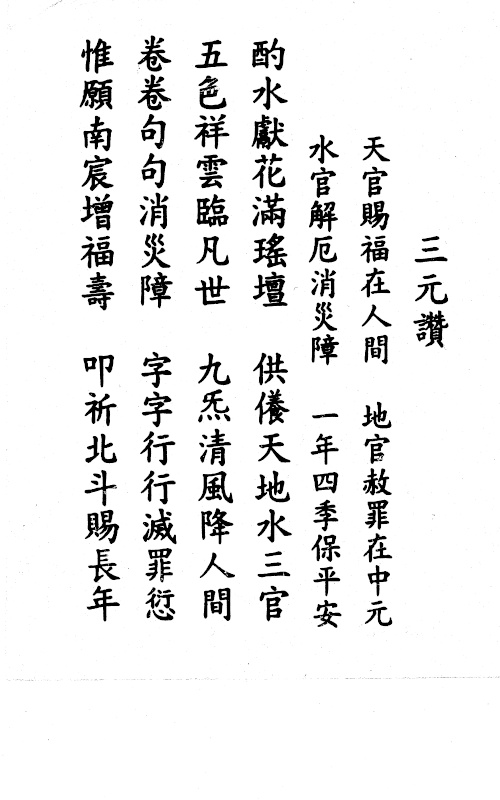 三元讚
天官賜福在人間　地官赦罪在中元
水官解厄消災障　一年四季保平安
酌水獻花滿瑤壇　供養天地水三官
五色祥雲臨凡世　九炁清風降人間
卷卷句句消災障　字字行行滅罪愆
惟願南宸增福壽　叩祈北斗賜長年